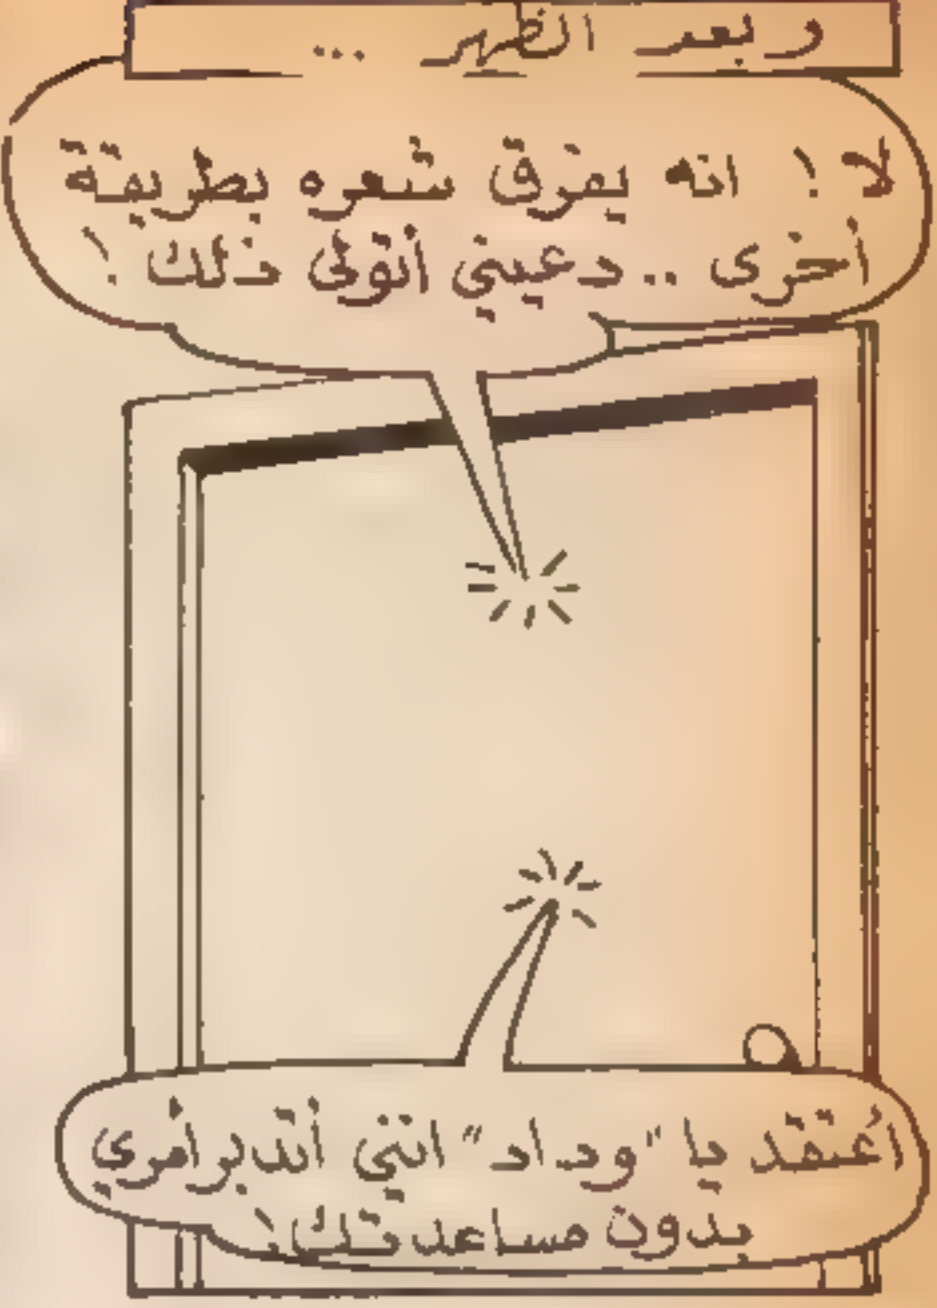 وبعد الظهر ...
لا ! انه يفرق شعره بطريقة
أخرى .. دعيني أتولى ذلك !
أعتقد يا "وداد" انني أتدبر أمري
بدون مساعدتك !